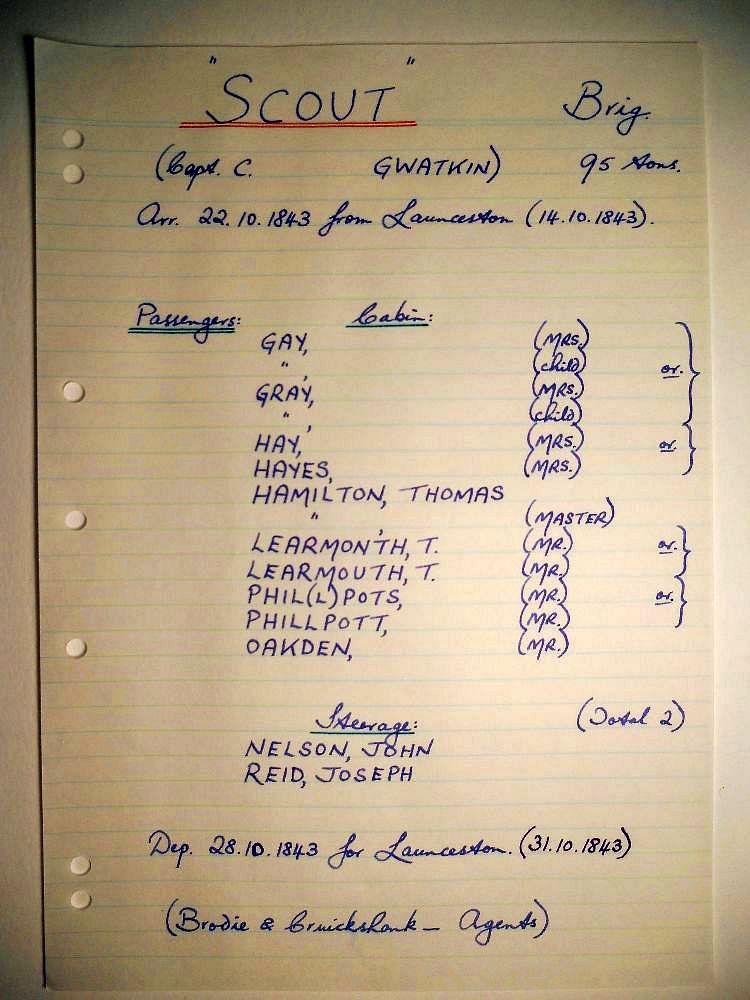 "SCOUT" Brig.
(Capt. C. GWATKIN) 95 tons.
Arr. 22.10.1843 from Launceston (14.10.1843).
Passengers: Cabin:
GAY, (MRS.)
" , (child) or.
GRAY, (MRS.)
" , (child)
HAY, (MRS.) or.
HAYES, (MRS.)
HAMILTON, THOMAS
" , (MASTER)
LEARMONTH, T. (MR.) or.
LEARMOUTH, T. (MR.)
PHIL(L)POTS, (MR.) or.
PHILLPOTT, (MR.)
OAKDEN, (MR.)
Steerage: (Total 2)
NELSON, JOHN
REID, JOSEPH
Dep. 28.10.1843 for Launceston. (31.10.1843)
(Brodie & Cruickshank - Agents)